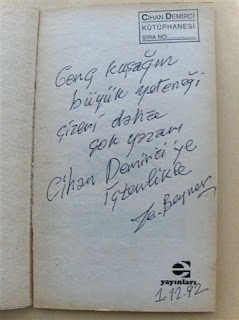 CİHAN DEMİRCİ
KÜTÜPHANESİ
SIRA NO:
Genç kuşağın
büyük yeteneği
çizeri daha
çok yazarı
Cihan Demirci'ye
içtenlikle
yayınları
1.12.92